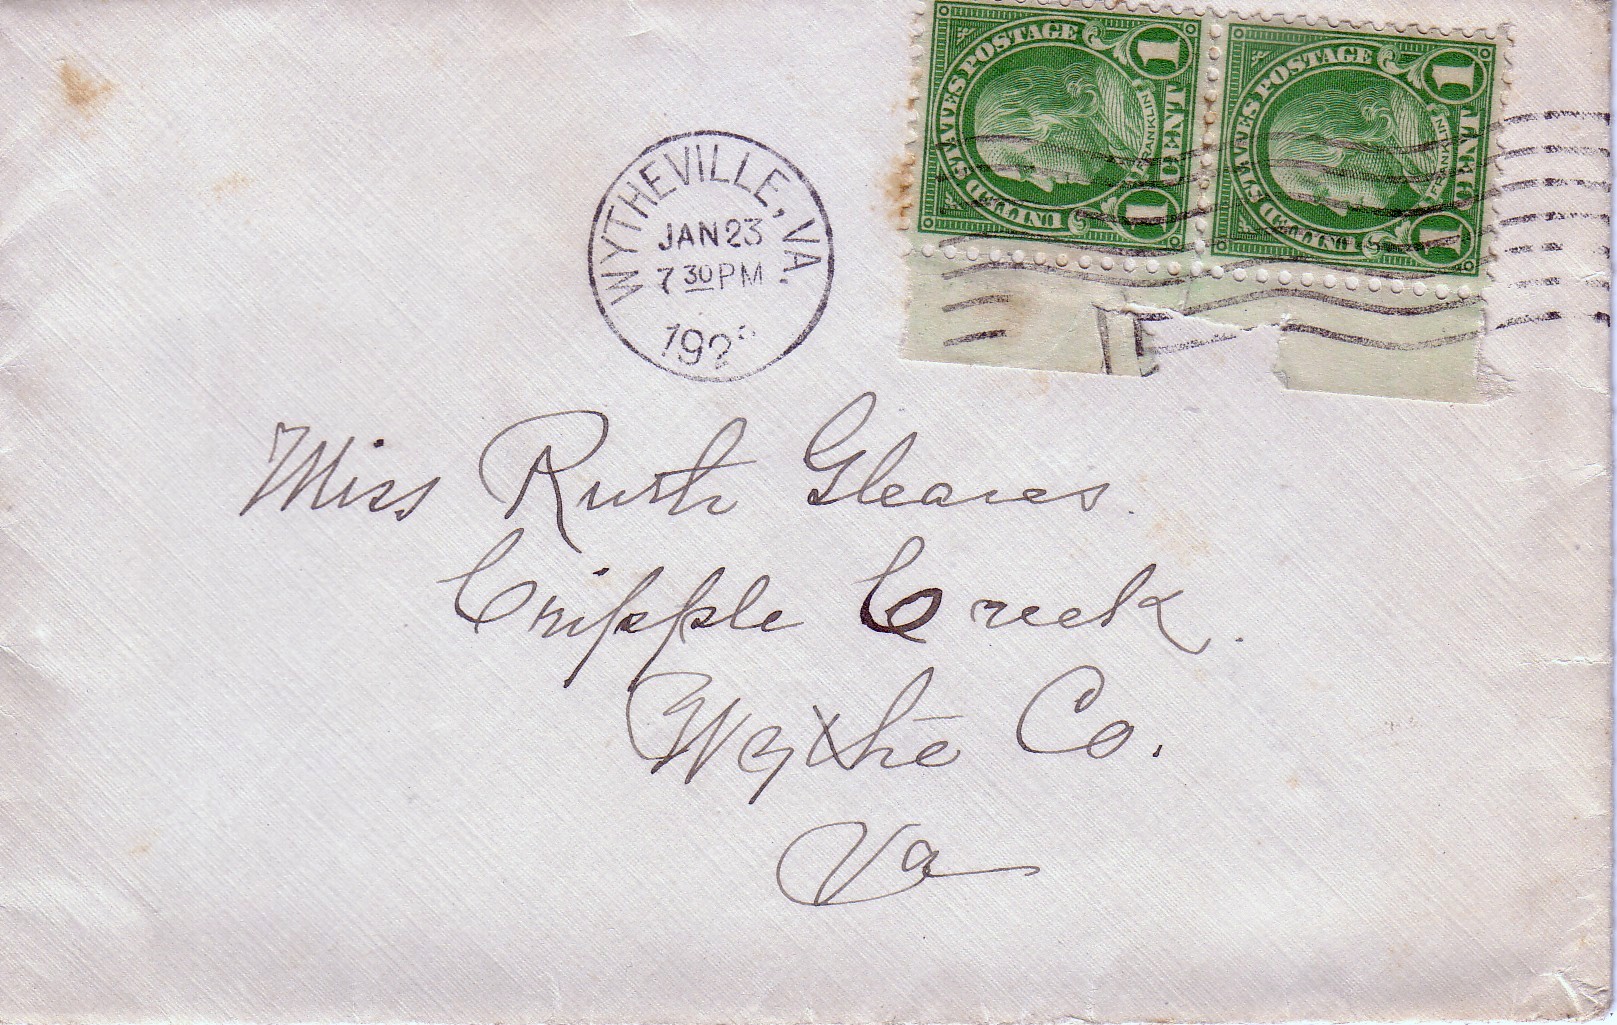 UNITED STATES POSTAGE
1 FRANKLIN 1
1 CENT 1
UNITED STATES POSTAGE
1 FRANKLIN 1
1 CENT 1
WYTHEVILLE, VA.
JAN 23
7 30 PM
Miss Ruth Gleaves.
Cripple Creek.
Wythe Co.
Va